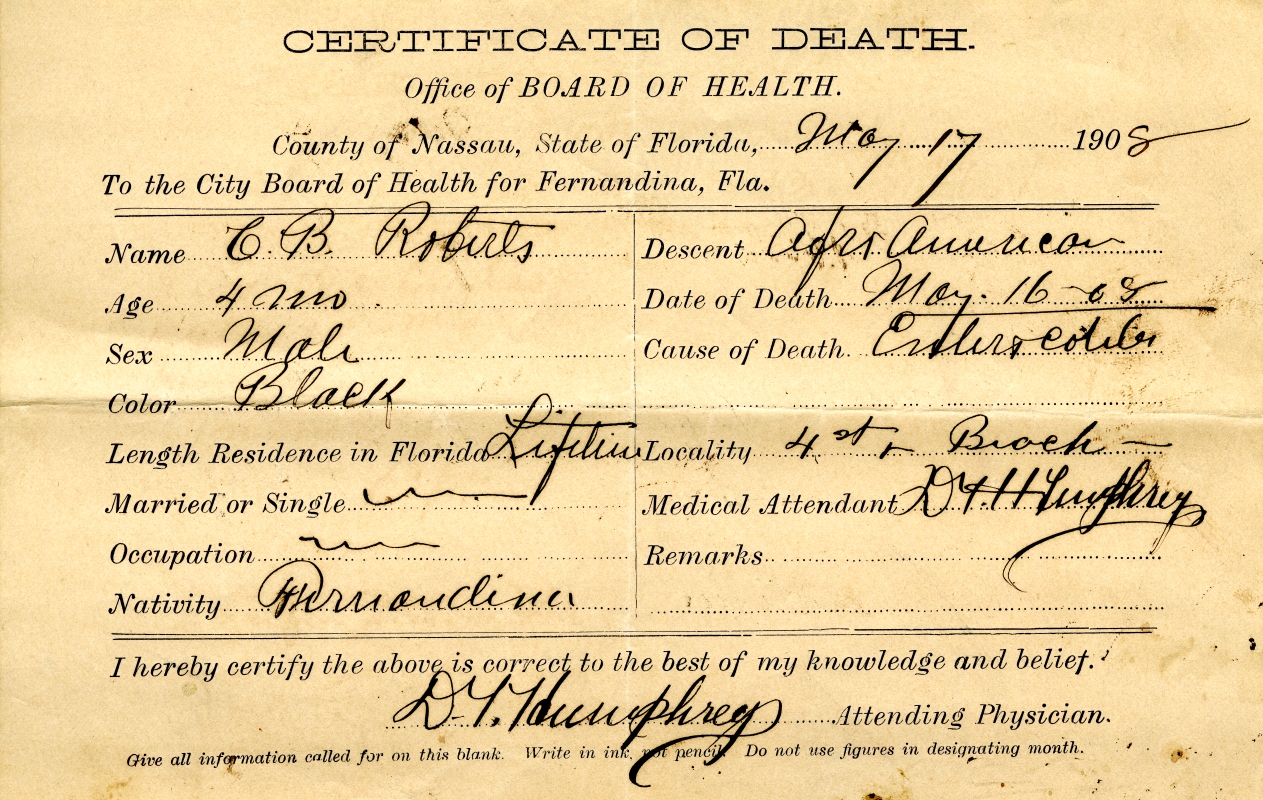 CERTIFICATE OF DEATH.
Office of BOARD OF HEALTH.
County of Nassau, State of Florida, May 17 1908
To the City Board of Health for Fernandina, Fla.
Name C. B. Roberts
Age 4 mo.
Sex Male
Color Black
Length Residence in Florida Lifetime
Married or Single
Occupation
Nativity Fernandina
Descent Afro American
Date of Death May. 16 - 08
Cause of Death Entero colitis
Locality 4 st + Beach
Medical Attendant D. Humphrey
Remarks
I hereby certify the above is correct to the best of my knowledge and belief.
D. Humphrey Attending Physician.
Give all information called for on this blank. Write in ink, not pencil. Do not use figures in designating month.